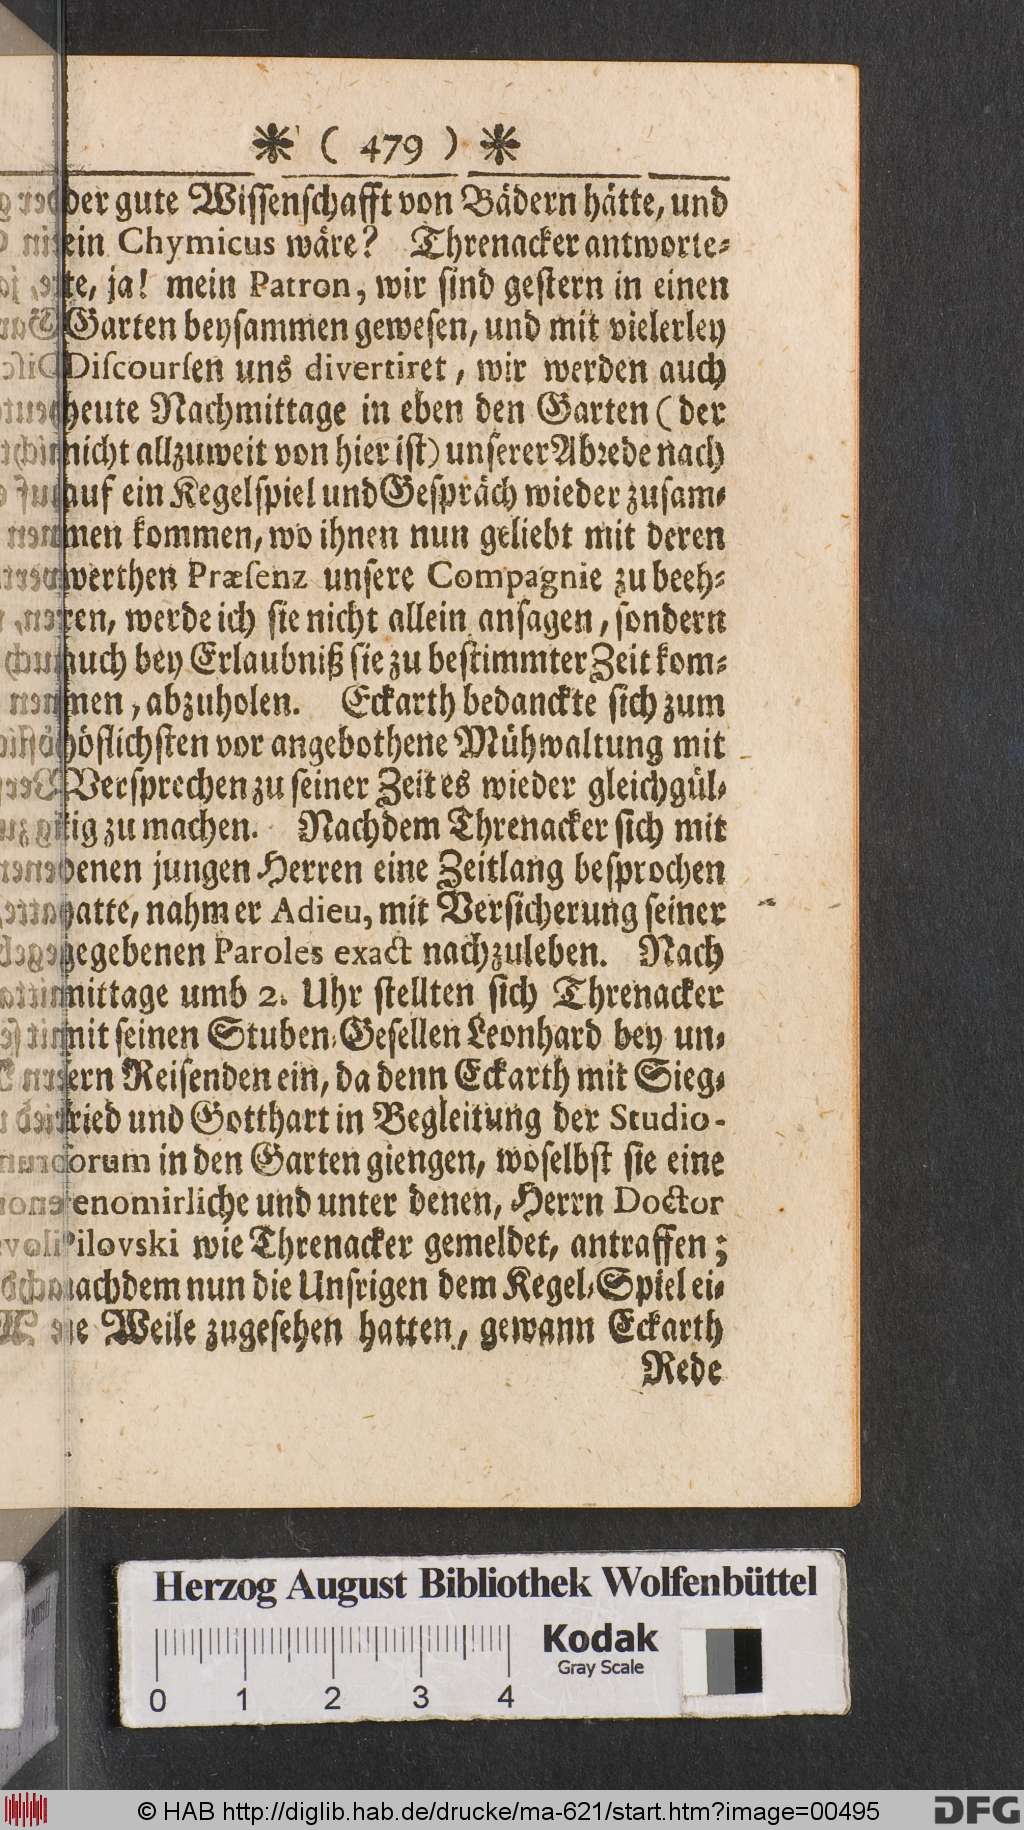 ( 479 )
der gute Wissenschafft von Bädern hätte, und
ein Chymicus wäre? Threnacker antworte-
te, ja! mein Patron, wir sind gestern in einen
Garten beysammen gewesen, und mit vielerley
Discoursen uns divertiret, wir werden auch
heute Nachmittage in eben den Garten (der
nicht allzuweit von hier ist) unserer Abrede nach
auf ein Kegelspiel und Gespräch wieder zusam-
men kommen, wo ihnen nun geliebt mit deren
werthen Præsenz unsere Compagnie zu beeh-
ren, werde ich sie nicht allein ansagen, sondern
auch bey Erlaubniß sie zu bestimmter Zeit kom-
men, abzuholen. Eckarth bedanckte sich zum
höflichsten vor angebothene Mühwaltung mit
Versprechen zu seiner Zeit es wieder gleichgül-
tig zu machen. Nachdem Threnacker sich mit
denen jungen Herren eine Zeitlang besprochen
hatte, nahm er Adieu, mit Versicherung seiner
gegebenen Paroles exact nachzuleben. Nach
mittage umb 2. Uhr stellten sich Threnacker
mit seinen Stuben-Gesellen Leonhard bey un-
sern Reisenden ein, da denn Eckarth mit Sieg-
fried und Gotthart in Begleitung der Studio-
sorum in den Garten giengen, woselbst sie eine
renomirliche und unter denen, Herrn Doctor
Pilovski wie Threnacker gemeldet, antraffen;
nachdem nun die Unsrigen dem Kegel-Spiel ei-
ne Weile zugesehen hatten, gewann Eckarth
Rede
Herzog August Bibliothek Wolfenbüttel
Kodak
Gray Scale
0 1 2 3 4
© HAB http://diglib.hab.de/drucke/ma-621/start.htm?image=00495
DFG